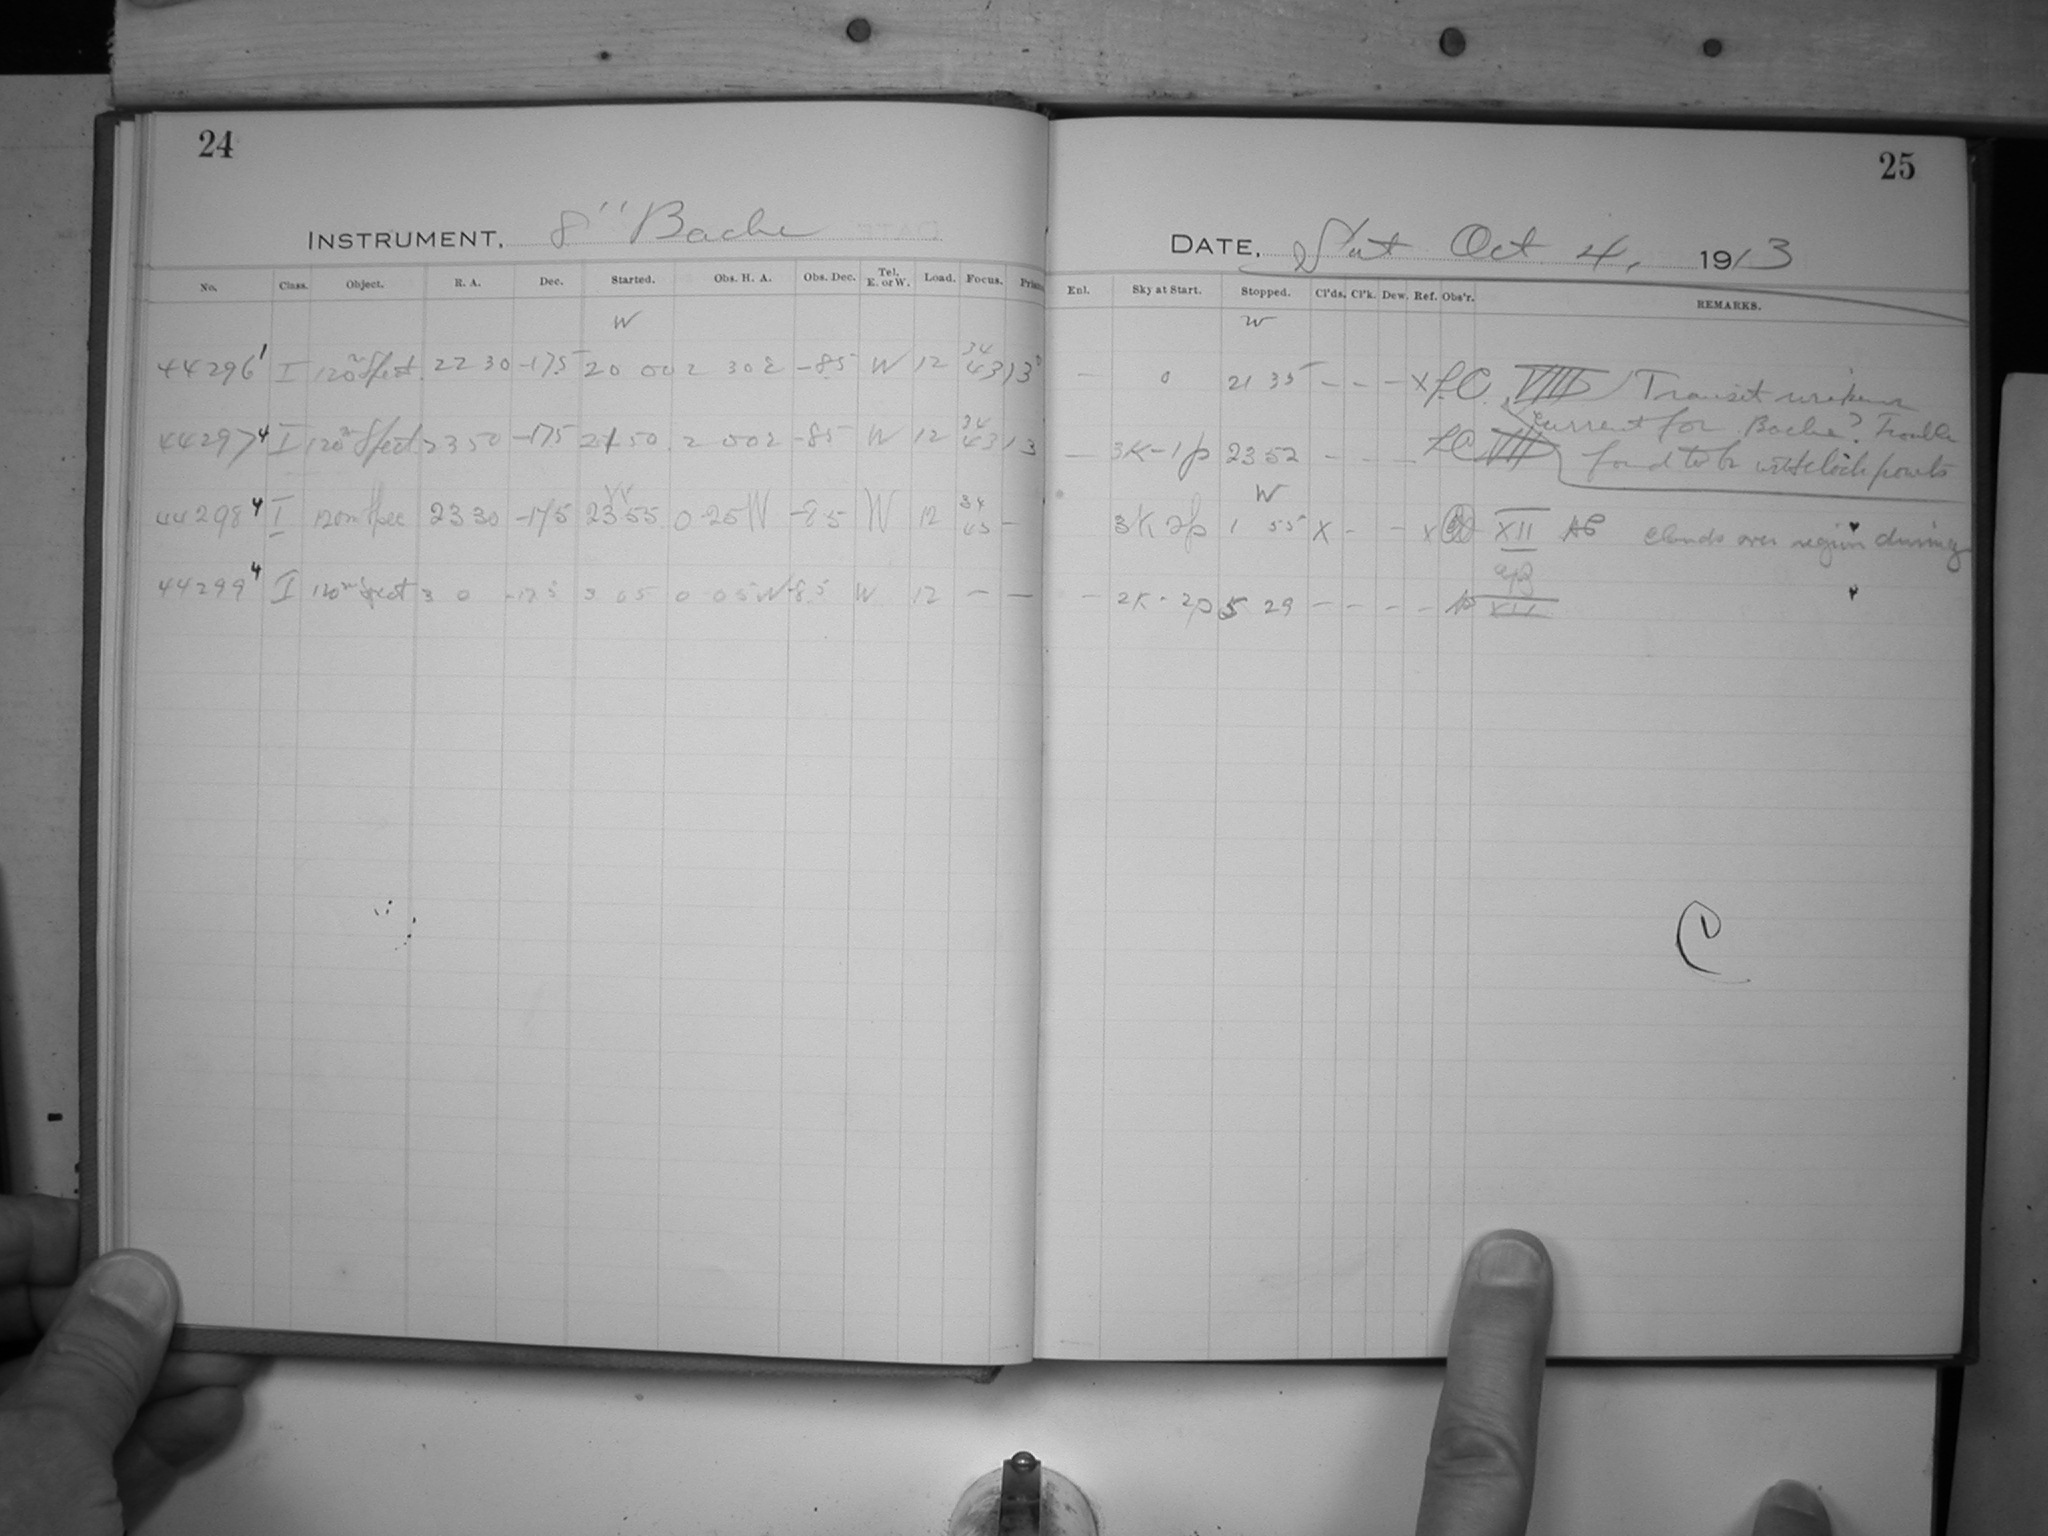 24
INSTRUMENT, 8" Bache
No. Class. Object. R. A. Dec. Started. Obs. H. A. Obs. Dec. Tel. E. or W. Load. Focus.
W
44296 1 I 120m Spect. 22 30 -17.5 20 00 2 30 E -85 W 12 34 43 13
44297 4 I 120m Spect 23 50 -17.5 21 50 2 00 E -85 W 12 34 43 13
44298 4 I 120m Spec 23 30 -17.5 23 55 0 25 W -85 W 12 34 43 -
44299 4 I 120m Spect 3 0 -17.5 3 05 0 05 W -85 W 12 - -
25
DATE, Sat Oct 4, 1913
Enl. Sky at Start. Stopped. Cl'ds. Cl'k. Dew. Ref. Obs'r. REMARKS.
W
- 0 21 35 - - - X L.C. VIII Transit
current for Bache? Trouble
- 3K-1p 23 52 - - - LC VIII found to be with clock points
W
3K 2p 1 55 X - - X XII clouds over region during
exp
- 2K - 2p 5 29 - - - - XII
C